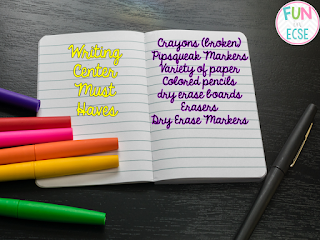 Writing
Center
Must
Haves
Crayons (broken)
Pipsqueak Markers
Variety of paper
Colored pencils
dry erase boards
Erasers
Dry Erase Markers
FUN
in
ECSE